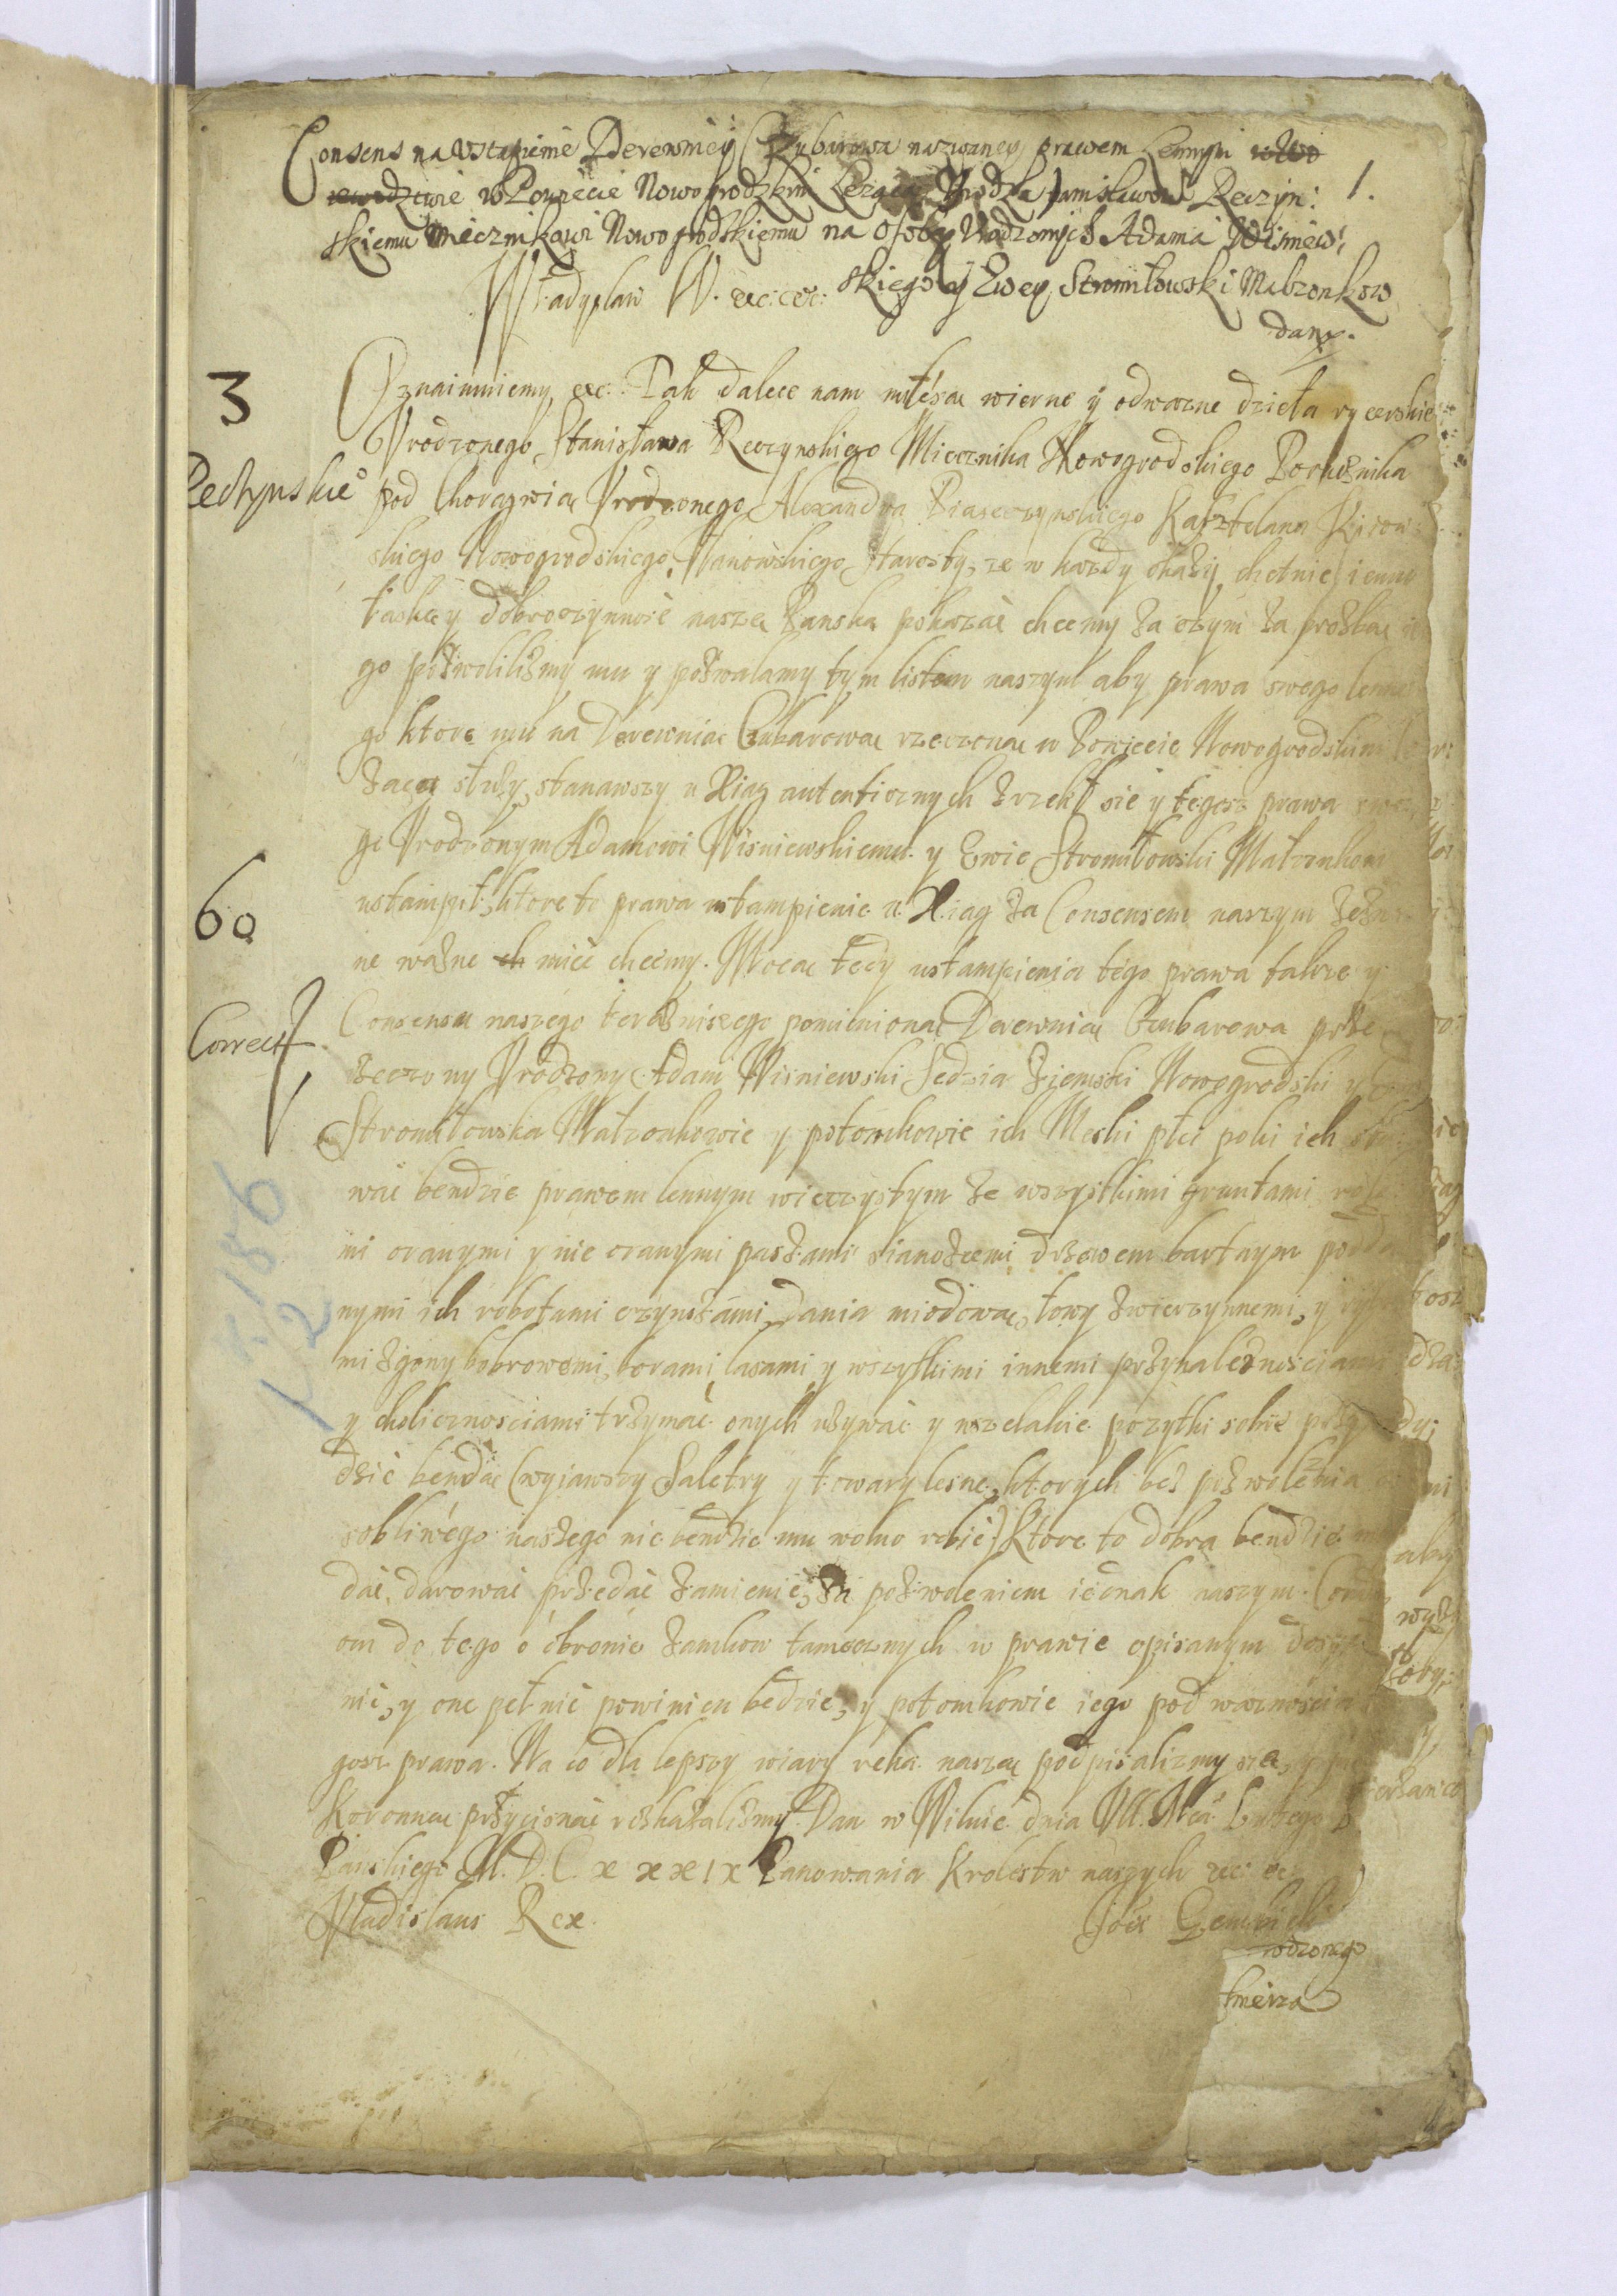 Consens na Ustąpienie Derewniey Czubarowa nazwaney prawem Lennym w Wo
iewodztwie w Powiecie Nowogrodzkim Lezącey Urodze Stanisławowi Reczyn: 1.
skiemu Miecznikowi Nowogrodskiemu na Osoby Urodzonych Adama Wisniew:
skiego y Ewey Stromiłowski Małzonkow
Władysław W. etc: etc:
dany.
3
Oznaimuiemy etc: Tak dalece nam miłe są wierne y odwazne dzieła rycerskie
Urodzonego Stanisława Reczynskiego Miecznika Nowogrodskiego Porucznika
Reczynskie pod Chorągwią Urodzonego Alexandra Piaseczynskiego Kasztelana Kiiow:
skiego Nowogrodskiego, Ulanowskiego Starosty, ze w kazdy okaziy chetnie iemu
łaskę y dobroczynnosc naszą Panską pokazac chcemy Za czym za prozbą ie
go pozwolilismy mu y pozwalamy tym listem naszym aby prawa swego lenne
go ktore mu na Derewnią Czubarową rzeczoną w Powiecie Nowogrodskim le
zącą słuzy, stanąwszy u Xiąg autenticznych zrzekł sie y tegosz prawa swe
go Urodzonym Adamowi Wisniewskiemu y Ewie Stromiłowski Małzonkom
60
ustampił, ktore to prawa ustampienie u Xiąg za Consensem naszym zezna
ne wazne ch miec chcemy. Mocą tedy ustampienia tego prawa takze y
Correct
Consensu naszego teraznieszego pomienioną Derewnią Czubarowa prze
rzeczony Urodzony Adam Wisniewski Sędzia Ziemski Nowogrodski y Ewa
Stromiłowska Małzonkowie y potomkowie ich Męski płci poki ich
wac bendzie prawem lennym wieczystym ze wszystkimi gruntami rolą
mi oranymi y nie oranymi paszami sianozęcmi, drzewem bartnym podda
nymi ich robotami czynszami, Danią miodową, łowy zwierzynnemi, y ryb
mi zgony bobrowemi, borami, lasami y wszytkimi innemi przynaleznosciami
y okolicznosciami trzymac onych uzywac y wszelakie pozytki sobie przy
dzic bendą (wyiąwszy Saletry y towary lesne, ktorych bez pozwolenia o
sobliwego naszego nie bendzie mu wolno robic) Ktore to dobra bendzie mo
dac, darowac przedac zamienic, za pozwoleniem iednak naszym.
om do tego o obronie zamkow tamecznych w prawie opisanym dosyc
nic, y one pełnic powinien będzie, y potomkowie iego pod waznoscią
gosz prawa. Na co dla lepszy wiary reką naszą podpisalizmy się, y
Koronną przycisnąc rozkazalismy. Dan w Wilnie dnia VII. Mca Lutego
Panskiego M. D. C. x x x I x Panowania Krolestw naszych etc: etc
Vladislaus Rex.